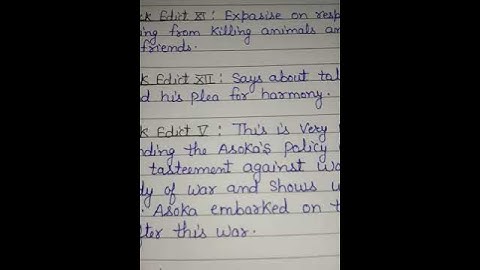 ck Edict XI : Expasise on resp
ing from killing animals an
friends.
k Edict XII : Says about tol
d his plea for harmony.
k Edict V : This is very
nding the Asoka's Policy
tasteement against wa
dy of war and shows w
. Asoka embarked on t
fter this war.